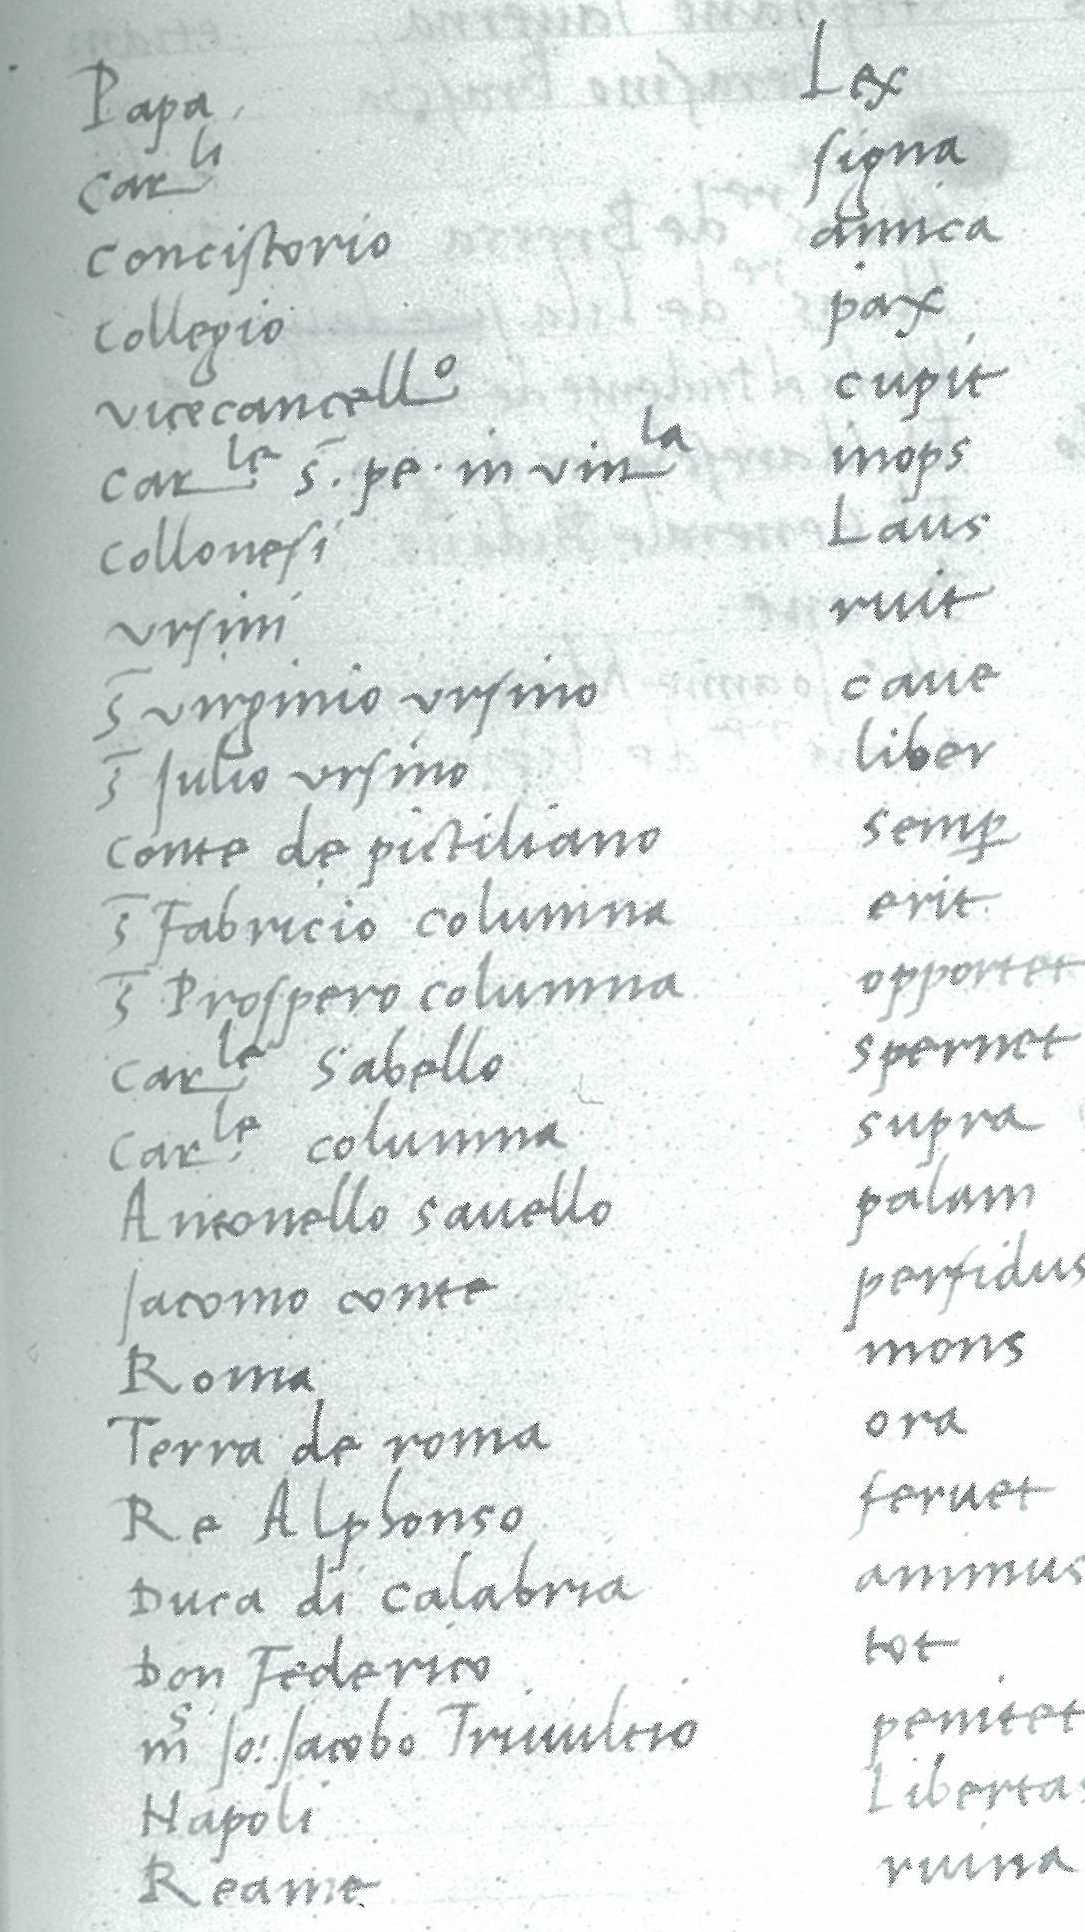 Papa Lex
Car.li signa
Concistorio amica
Collegio pax
vicecancell.o cupit
Car.le s. pe. in vin.la inops
Collonesi Laus
Ursini ruit
s virginio ursino caue
s Julio ursino liber
Conte de pictiliano semp
s Fabricio columna erit
s Prospero columna opportet
Car.le Sabello spernet
Car.le columna supra
Antonello sauello palam
Jacomo conte perfidus
Roma mons
Terra de roma ora
Re Alphonso feruet
Duca di Calabria animus
Don Federico tot
m.s Jo: Jacobo Triuultio penitet
Napoli Libertas
Reame ruina